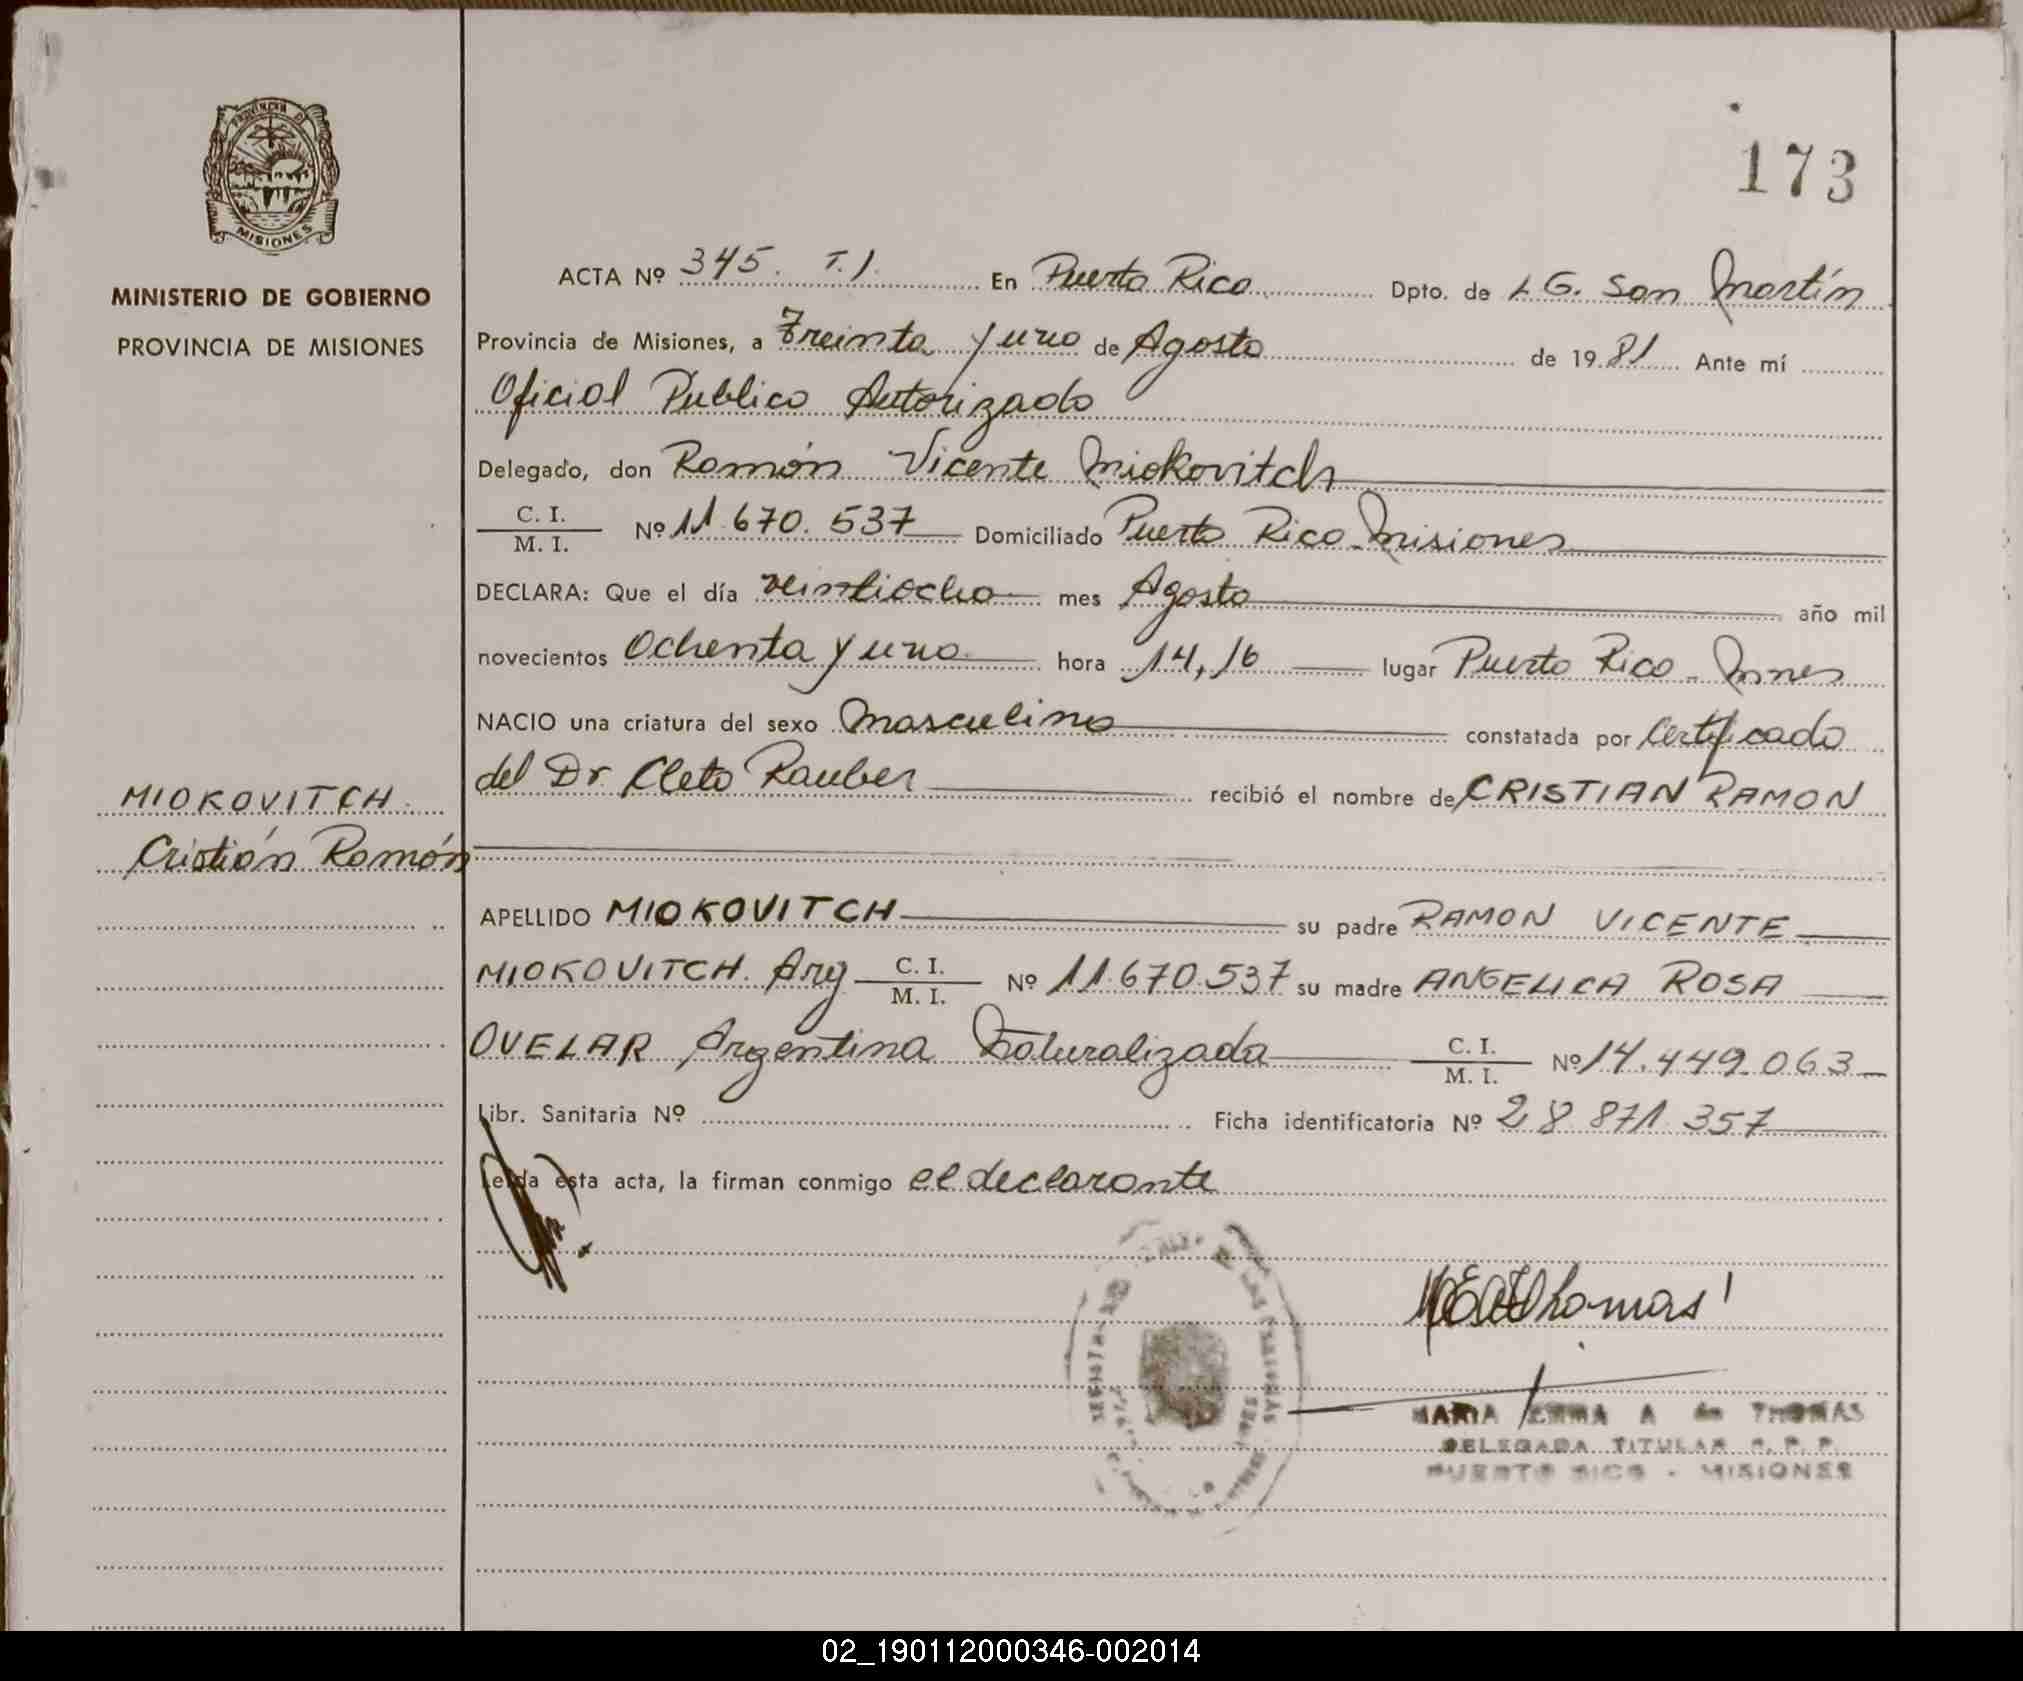 PROVINCIA D
MISIONES
MINISTERIO DE GOBIERNO
PROVINCIA DE MISIONES
173
ACTA Nº 345. T.I. En Puerto Rico Dpto. de L G. San Martín
Provincia de Misiones, a Treinta y uno de Agosto de 1981 Ante mí
Oficial Publico Autorizado
Delegado, don Ramón Vicente Miokovitch
C. I.
M. I. Nº 11.670.537 Domiciliado Puerto Rico-Misiones
DECLARA: Que el día veintiocho mes Agosto año mil
novecientos Ochenta y uno hora 14,16 lugar Puerto Rico - Mnes
NACIO una criatura del sexo Masculino constatada por Certificado
del Dr. Cleto Rauber recibió el nombre de CRISTIAN RAMON
MIOKOVITCH
Cristián Ramón
APELLIDO MIOKOVITCH su padre RAMON VICENTE
MIOKOVITCH. Arg C. I. M. I. Nº 11.670.537 su madre ANGELICA ROSA
OVELAR Argentina Naturalizada C. I. M. I. Nº 14.449.063
Libr. Sanitaria Nº Ficha identificatoria Nº 28.871.357
Leída esta acta, la firman conmigo el declarante
Thomas
MARIA EMMA A de THOMAS
DELEGADA TITULAR R. P. P.
PUERTO RICO - MISIONES
02_190112000346-002014